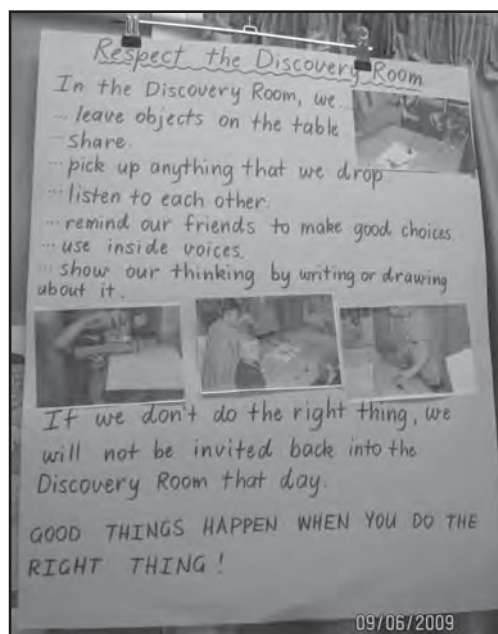 Respect the Discovery Room
In the Discovery Room, we...
... leave objects on the table
... share.
... pick up anything that we drop
... listen to each other.
... remind our friends to make good choices.
... use inside voices.
... show our thinking by writing or drawing
about it.
If we don't do the right thing, we
will not be invited back into the
Discovery Room that day.
GOOD THINGS HAPPEN WHEN YOU DO THE
RIGHT THING!
09/06/2009